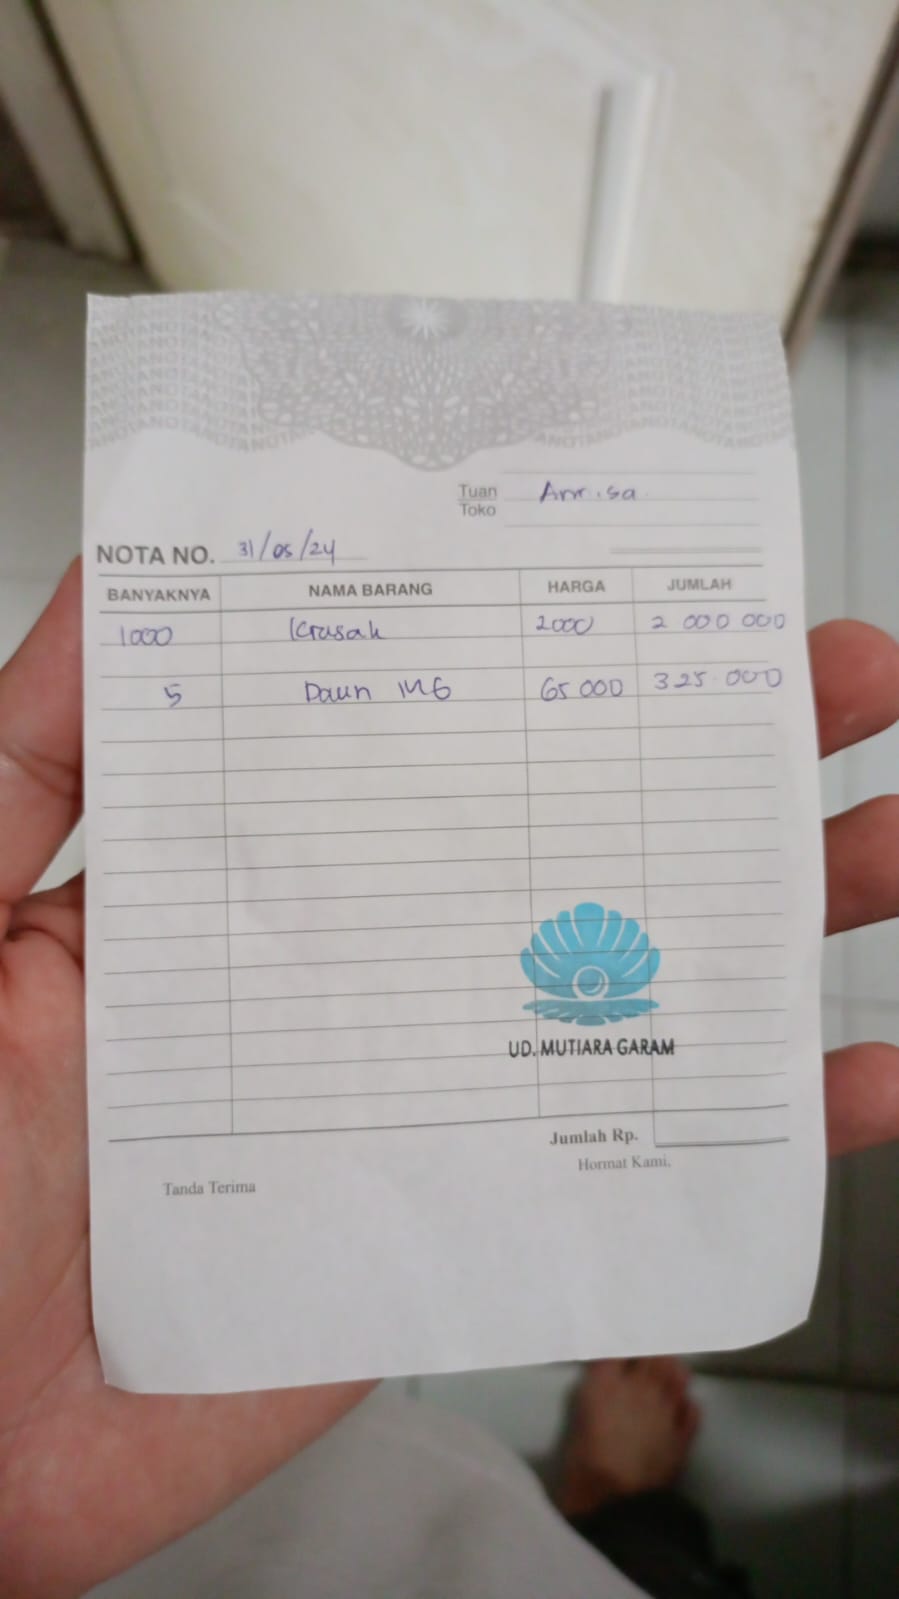 Tuan Annisa
Toko
NOTA NO. 31/05/24
BANYAKNYA NAMA BARANG HARGA JUMLAH
1000 Krosok 2000 2 000 000
5 Daun MG 65 000 325.000
UD. MUTIARA GARAM
Jumlah Rp.
Hormat Kami,
Tanda Terima